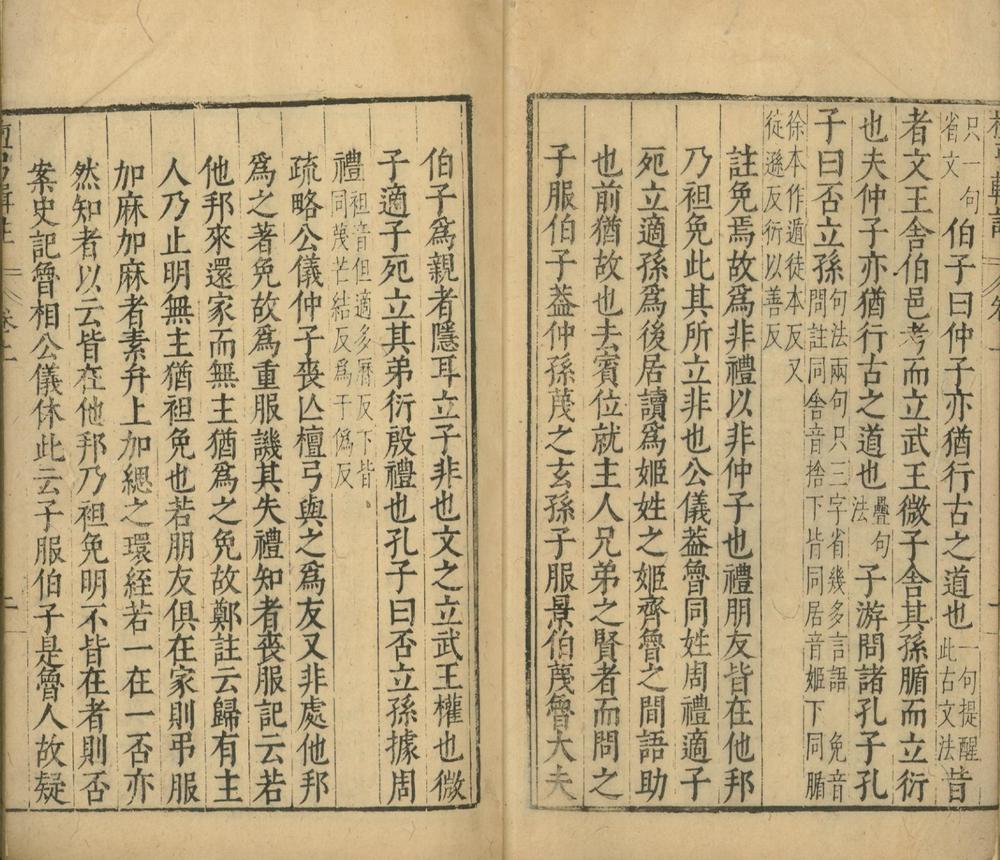 只一句
省文
伯子曰仲子亦猶行古之道也
一句提醒
此古文法
昔
者文王舍伯邑考而立武王微子舍其孫腯而立衍
也夫仲子亦猶行古之道也
疊句
法
子游問諸孔子孔
子曰否立孫
句法兩句只三字省幾多言語　免音
問註同舍音捨下皆同居音姬下同腯
徐本作遁徒本反又
徒遜反衍以善反
註免焉故為非禮以非仲子也禮朋友皆在他邦
乃袒免此其所立非也公儀葢魯同姓周禮適子
死立適孫為後居讀為姬姓之姬齊魯之間語助
也前猶故也去賓位就主人兄弟之賢者而問之
子服伯子葢仲孫蔑之玄孫子服景伯蔑魯大夫
伯子為親者隱耳立子非也文之立武王權也微
子適子死立其弟衍殷禮也孔子曰否立孫據周
禮
袒音但適多厤反下皆
同蔑芒結反為于偽反
疏略公儀仲子喪亾檀弓與之為友又非處他邦
為之著免故為重服譏其失禮知者喪服記云若
他邦來還家而無主猶為之免故鄭註云歸有主
人乃止明無主猶袒免也若朋友俱在家則弔服
加麻加麻者素弁上加緦之環絰若一在一否亦
然知者以云皆在他邦乃袒免明不皆在者則否
案史記魯相公儀休此云子服伯子是魯人故疑